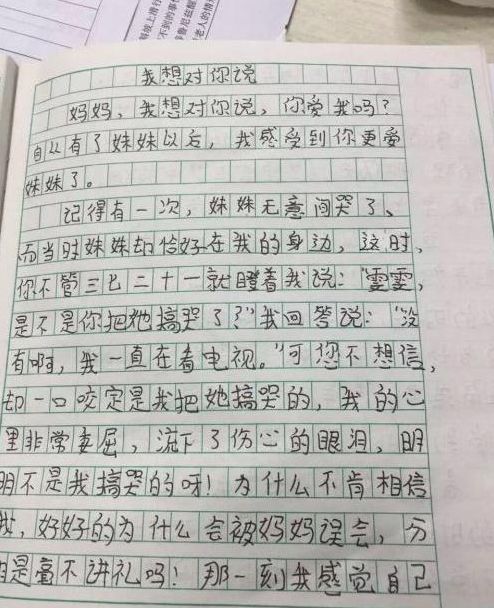 我想对你说
妈妈，我想对你说，你爱我吗？
自从有了妹妹以后，我感受到你更爱
妹妹了。
记得有一次，妹妹无意间哭了、
而当时妹妹却恰好在我的身边，这时，
你不管三七二十一就瞪着我说：“雯雯，
是不是你把她搞哭了？”我回答说：“没
有啊，我一直在看电视。”可您不想信，
却一口咬定是我把她搞哭的，我的心
里非常委屈，流下了伤心的眼泪，明
明不是我搞哭的呀！为什么不肯相信
我，好好的为什么会被妈妈误会，分
明是蛮不讲礼吗！那一刻我感觉自己